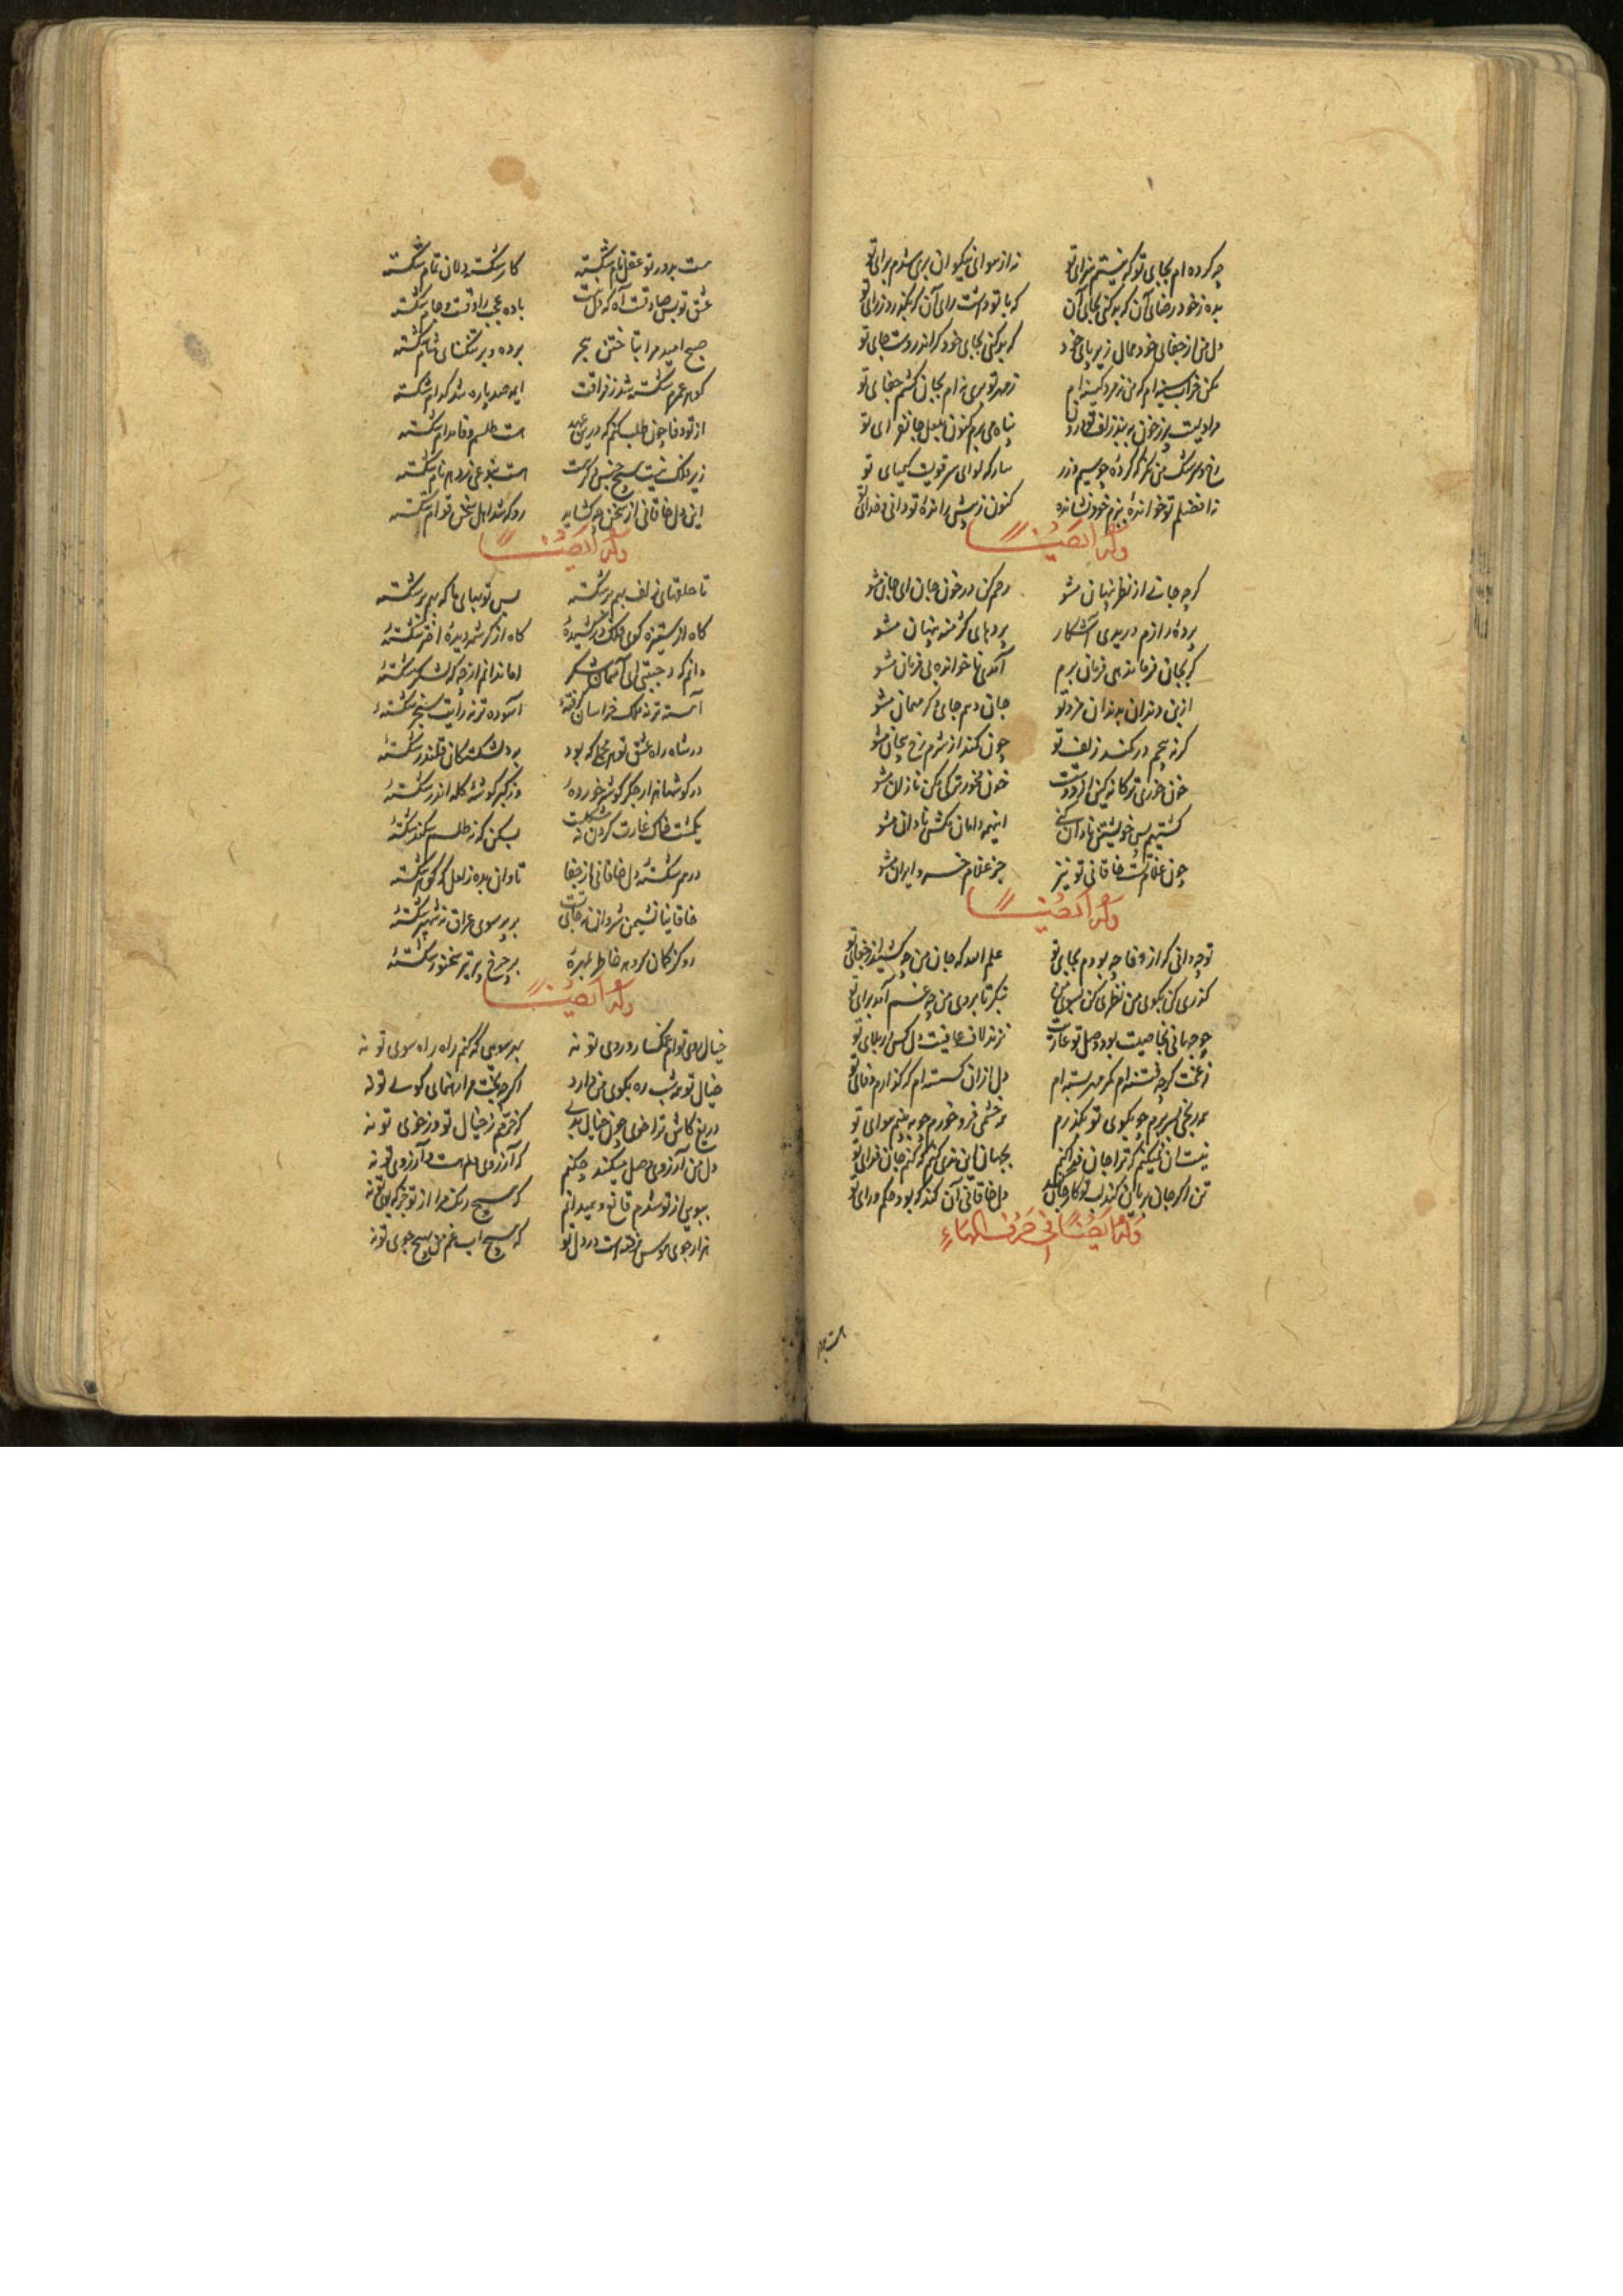 چه کرده ام بجای تو که نیستم سزای تو نه از هوای نیکوان بری شدم برای تو
مده ز خود رضای آن که بد کنی بجای آن که با تو داشت رای آن که نگذرد ز رای تو
دل من از جفای خود ممال زیر پای خود که بد کنی بجای خود که اندروست جای تو
مکن خراب سینه ام که من نه مرد کینه ام ز مهر تو بری نه ام بجان کشم جفای تو
مرا دلیست پر ز خون ببند زلف تو درون پناه می برم کنون بلعل جانفزای تو
رخ و سرشک من نگر که کرده چو سیم و زر کیمیای تو
نه افضلم تو خوانده ببزم خود نشانده کنون ز پیش رانده تو دانی و خدای تو
وله ایضًا
گرچه جانی از نظر پنهان مشو رحم کن در خون جان ای جان مشو
پرده رازم دریدی آشکار پنهان مشو
گر بجان فرماندهی فرمان برم آمدی ناخوانده بی فرمان مشو
ازین دندان بدندان مزد تو جان دهم جای دگر مهمان مشو
گرنه پیچم در کمند زلف تو چون کمند از شرم رخ پیچان مشو
خون مخور ترکی مکن تازان مشو
کشتیم پس خویشتن نادان کنی اینهمه دانا مکش نادان مشو
چون غلام تست خاقانی تو نیز جز غلام خسرو ایران مشو
وله ایضًا
تو چه دانی که از وفا چه نمودم بجای تو علم الله که جان من چه کشید از جفای تو
گذری کن بکوی من نظری کن بسوی من بنگر تا بروی من چه غم آمد برای تو
چو جهانی بخاصیت بود وصل تو عاریت نزند لاف عافیت دل کس در بلای تو
ز غمت گرچه خسته ام کمر مهر بسته ام دل ازان گسسته ام که گذارم وفای تو
بدرنجی بسر برم چو بکوی تو بگذرم همه خشمی فرو خورم چو ببینم هوای تو
بجهان این ندی کنم که کنم جان فدای تو
دل خاقانی آن کند که بود حکم و رای تو
وله ایضًا فی حرف الهاء
هست بدور تو عقل نام شکسته کار شکسته دلان تمام شکسته
عشق تو بس صادقست آه که دل نیست باده عجب راوقست و جام شکسته
صبح امید مرا بتاختن هجر برده و بر تنگنای شام شکسته
گوهر عمرم شکسته شد ز فراقت اینهمه صد پاره شد کدام شکسته
از تو وفا چون طلب کنم که درین عهد هست طلسم وفا مدام شکسته
زیر فلک نیست هیچ جنس دگر هست هست بنوعی ز دهر نام شکسته
این دل خاقانی از سخن چه گشاید رو که شد اهل سخن قوام شکسته
وله ایضًا
تا حلقهای زلف بهم بر شکسته بس توبهای ما که بهم در شکسته
گاه از ستیزه گوش فلک بر کشیده گاه از کرشمه دیده اختر شکسته
دانم که مه جبینی ای آسمان شکر اما ندانم از چه که لشکر شکسته
آهسته تر نه ملک خراسان گرفته آسوده تر نه رایت سنجر شکسته
در شاه راه عشق تو هر محملی که بود بر دلشکستگان قلندر شکسته
در گوشها از جگر گوشه خورده وز کبر گوشه کله اندر شکسته
یکمشت خاک غارت کردن نه مشکلست بس کن که نه طلسم سکندر شکسته
در هم شکسته دل خاقانی از جفا تاوان بده ز لعل که گوهر شکسته
خاقانیا نشیمن شروان نه جای تست بر پر سوی عراق نه شهپر شکسته
رو کز کمان گردون خاطر بمهره بر چرخ پر تیر سخنور شکسته
وله ایضًا
خیال روی توام غمگسار و روی تو نه بهر سوئی که کنم راه راه سوی تو نه
خیال تو همه شب ره بکوی من دارد اگرچه بخت مرا رهنمای کوی تو نه
دریغ کاش ترا خوی چون خیال بدی که خرمم ز خیال تو وز خوی تو نه
دل من آرزوی وصل میکند چکنم که آرزوی من هست و آرزوی تو نه
ببوئی از تو شدم قانع و همیدانم که هیچ رنگ مرا از تو جز که بوی تو نه
هزار جوی هوس رفته است در دل تو که هیچ آب غم من هیچ جوی تو نه